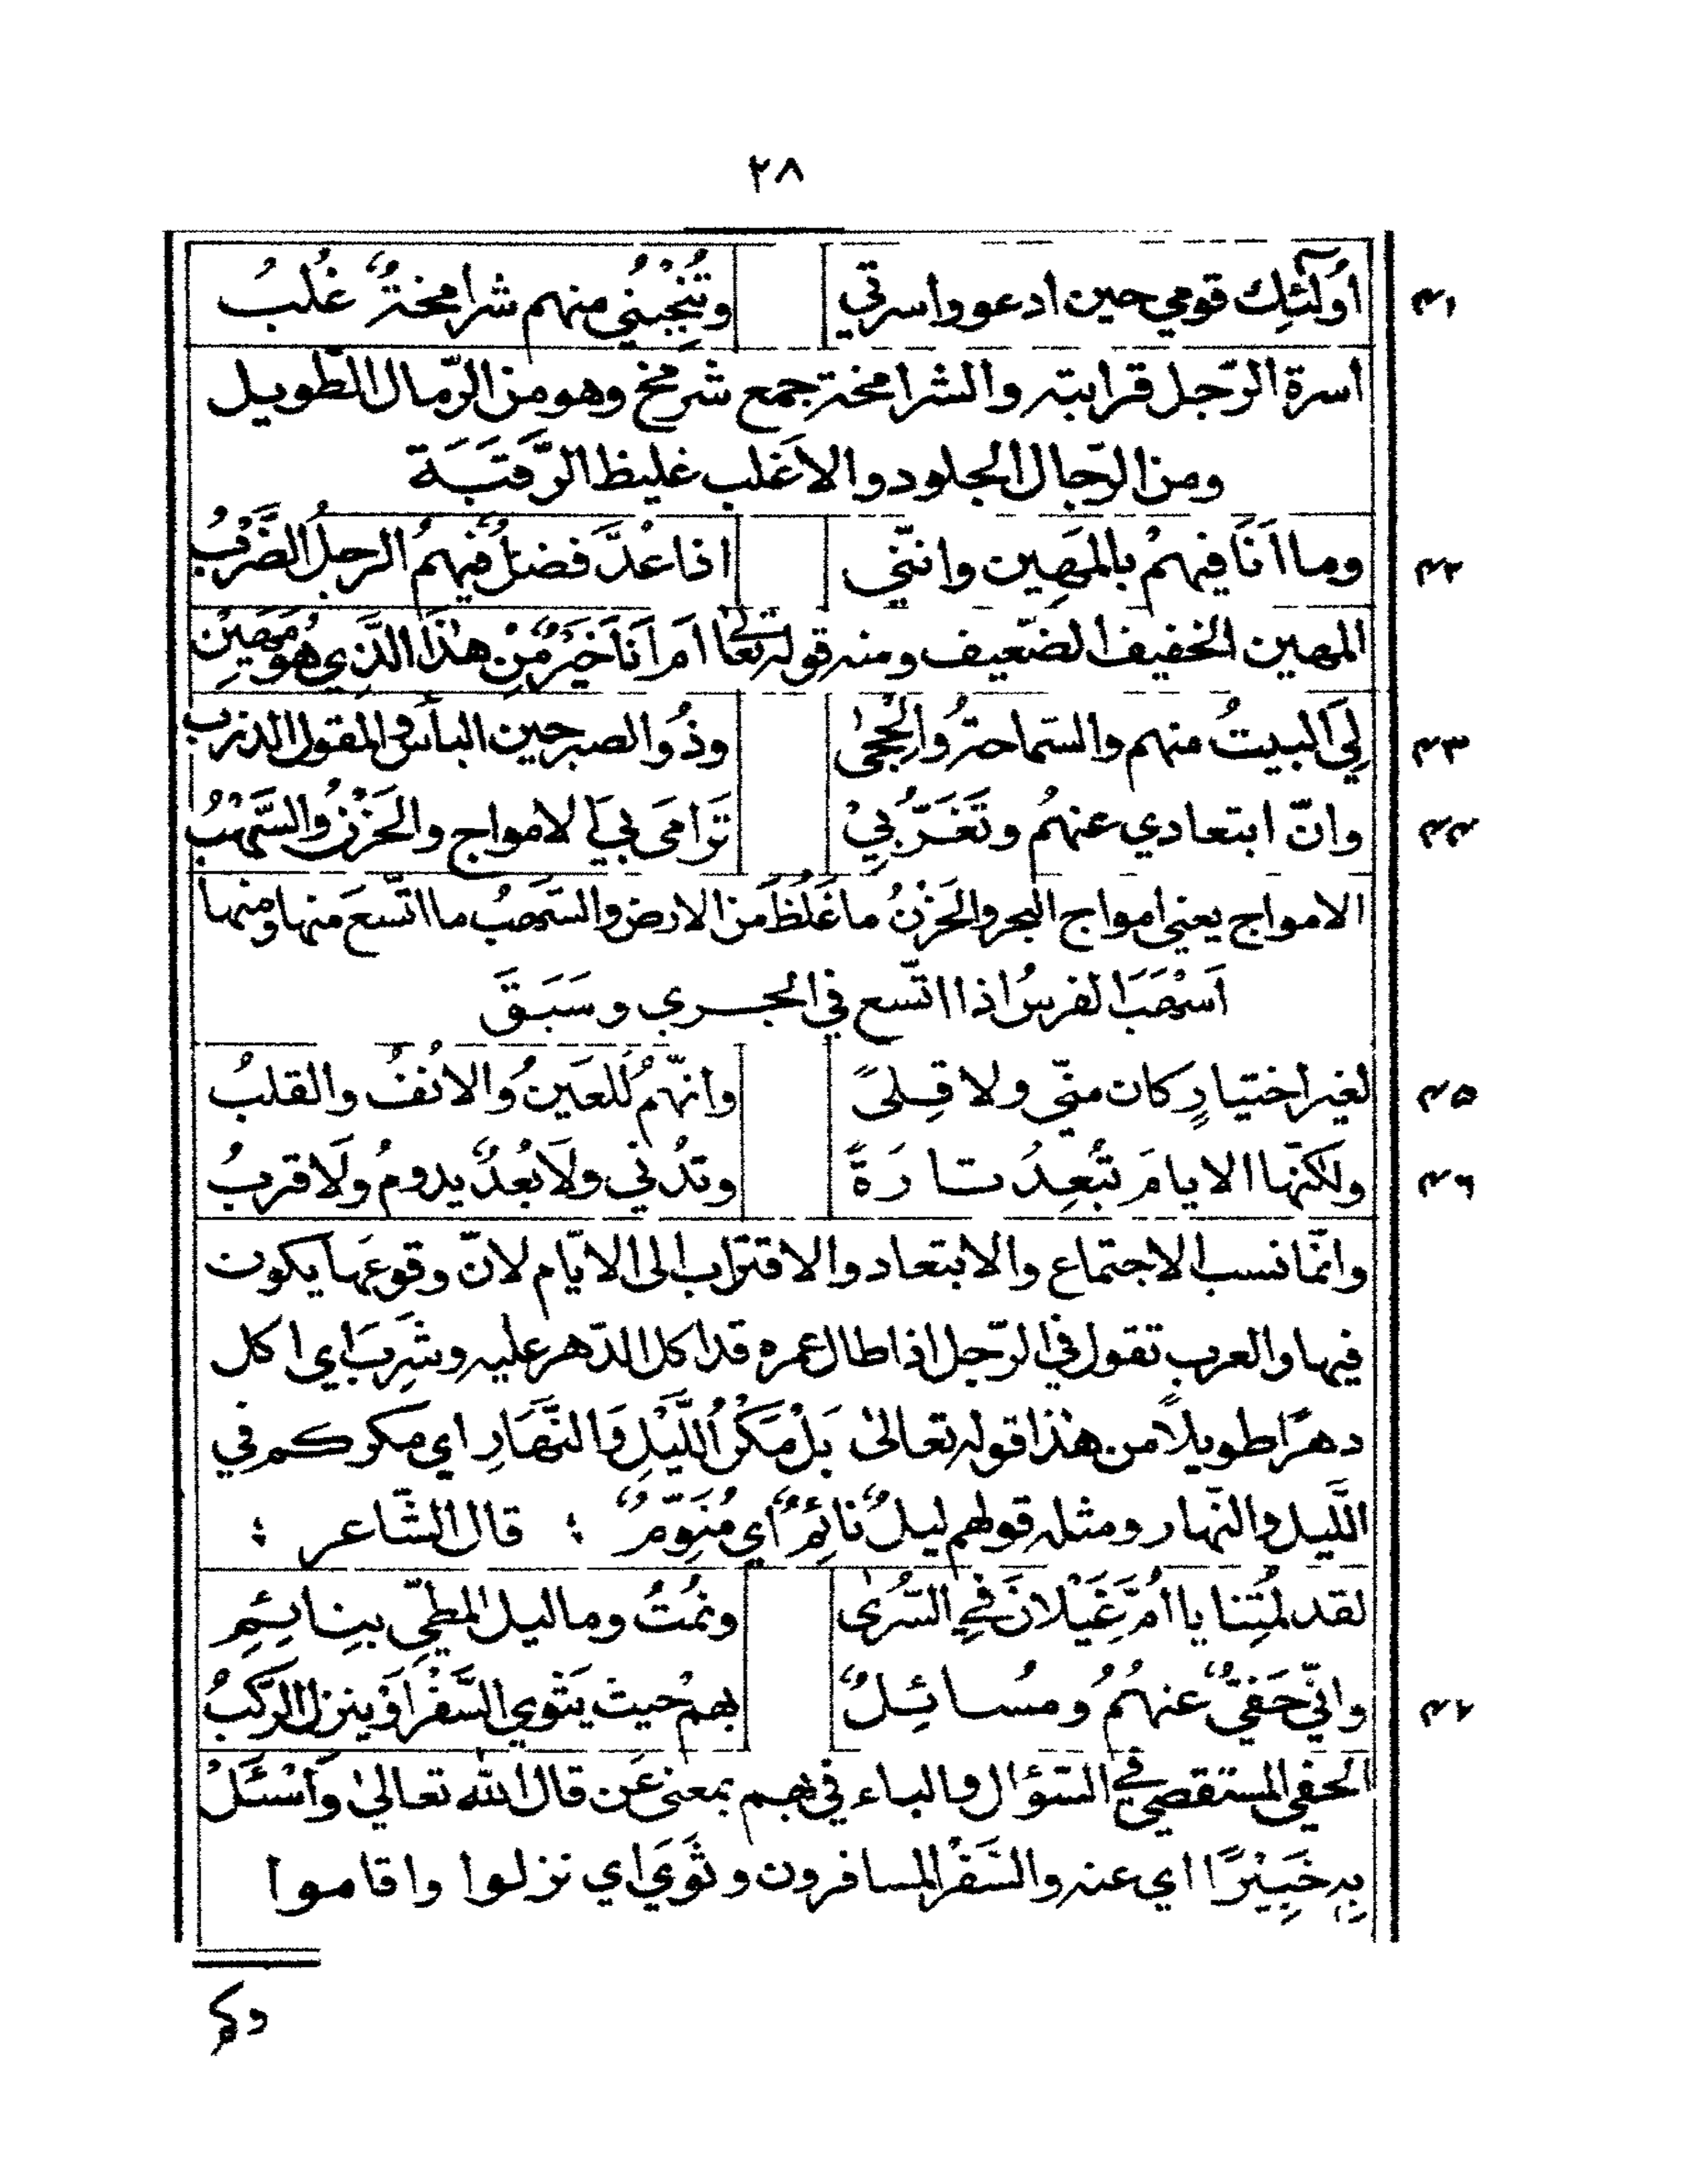 ٢٨
٤١ أُولٰٓئِك قومي حين ادعو واسرتي وتُنْجِبُني منهم شرامخةٌ غُلبُ
اسرة الرّجل قرابته والشرامخة جمع شرمخ وهو من الرّمال الطّويل
ومن الرّجال الجلود والاَغلب غليظ الرَّقَبَة
٤٢ وما اَنَا فيهمْ بالمَهِين وانّني اذا عُدَّ فضلٌ فيهمُ الرجلُ الضَّرْبُ
المهين الخفيف الضّعيف ومنه قوله تعالىٰ اَم اَنا خَيْرٌ مِّنْ هٰذَا الَّذِي هُوَ مَهِيْن
٤٣ لِيَ البيتُ منهم والسّماحةُ والحِجىٰ وذُو الصبر حين البأس والمقول الذرب
٤٤ وانّ ابتعادي عنهُم وتَغَرُّبِيْ تَرَامىَ بيَ الامواج والحَزْنُ والسَّهْبُ
الامواج يعني امواج البحر والحَزْنُ ما غَلُظَ من الارض والسَّهبُ ما اتّسعَ منها ومنها
اَسْهَبَ الفرسُ اذا اتّسع في الجري وسَبَقَ
٤٥ لغير اختيارٍ كان منّي ولا قِلىً وانّهمُ لَلعَينُ والانُفُ والقلبُ
٤٦ ولٰكنّها الايامَ تُبْعِدُ تارَةً وتدُني ولَا بُعْدٌ يدومُ ولَا قربُ
وانّما نسب الاجتماع والابتعاد والاقتراب الى الايّام لانّ وقوعَها يكون
فيها والعرب تقول في الرّجل اذا طال عمره قد اكل الدّهر عليه وشَرِبَ اي اكل
دهرًا طويلاً من هٰذا قوله تعالىٰ بَلْ مَكْرُ اللَّيْلِ وَالنَّهَارِ اي مكركم في
اللّيل والنّهار ومثله قولهم ليلٌ نائمٌ اي مُنَوِّمٌ ؛ قال الشّاعر ؛
لقد لمُتِنا يا اُمَّ غَيْلَانَ في السُّرىٰ ونمُتُ وما ليل المطيّ بِنائِمِ
٤٧ وانّي حَفيٌّ عنهُمُ ومُسائِلٌ بهمْ حيث يَثوي السَّفْرُ اَوْ ينزل الرَّكْبُ
الحفي المستقصي في السّؤال والباء في بهم بمعنىٰ عَن قال اللّٰه تعالىٰ وَاَسْئَلْ
بِهٖ خَبِيْرًا اي عنه والسَّفْر المسافرون وثَوَيَ اي نزلوا واقاموا
وكم